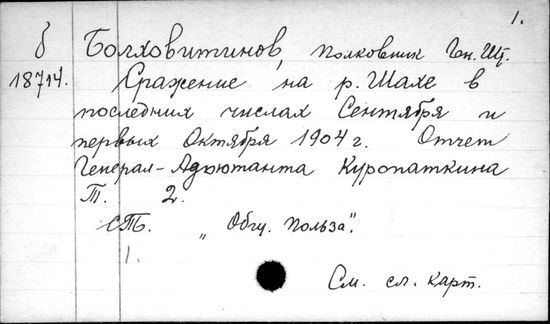 1.
б Болховитинов, полковник Ген. Шт.
18714. Сражение на р. Шахе в
последних числах Сентября и
первых Октября 1904 г. Отчет
Генерал-Адъютанта Куропаткина
Т. 2.
СПб. „Общ. Польза".
1.
См. сл. карт.